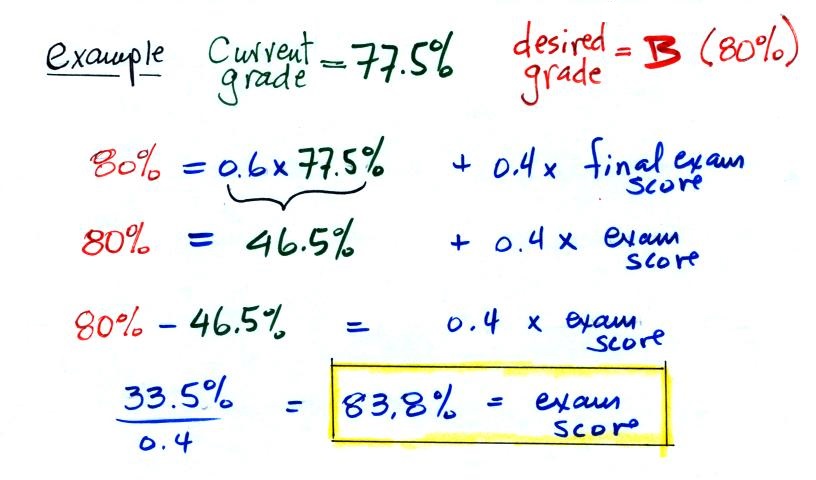 example Current grade = 77.5% desired grade = B (80%)
80% = 0.6 x 77.5% + 0.4 x final exam score
80% = 46.5% + 0.4 x exam score
80% - 46.5% = 0.4 x exam score
33.5% / 0.4 = 83.8% = exam score